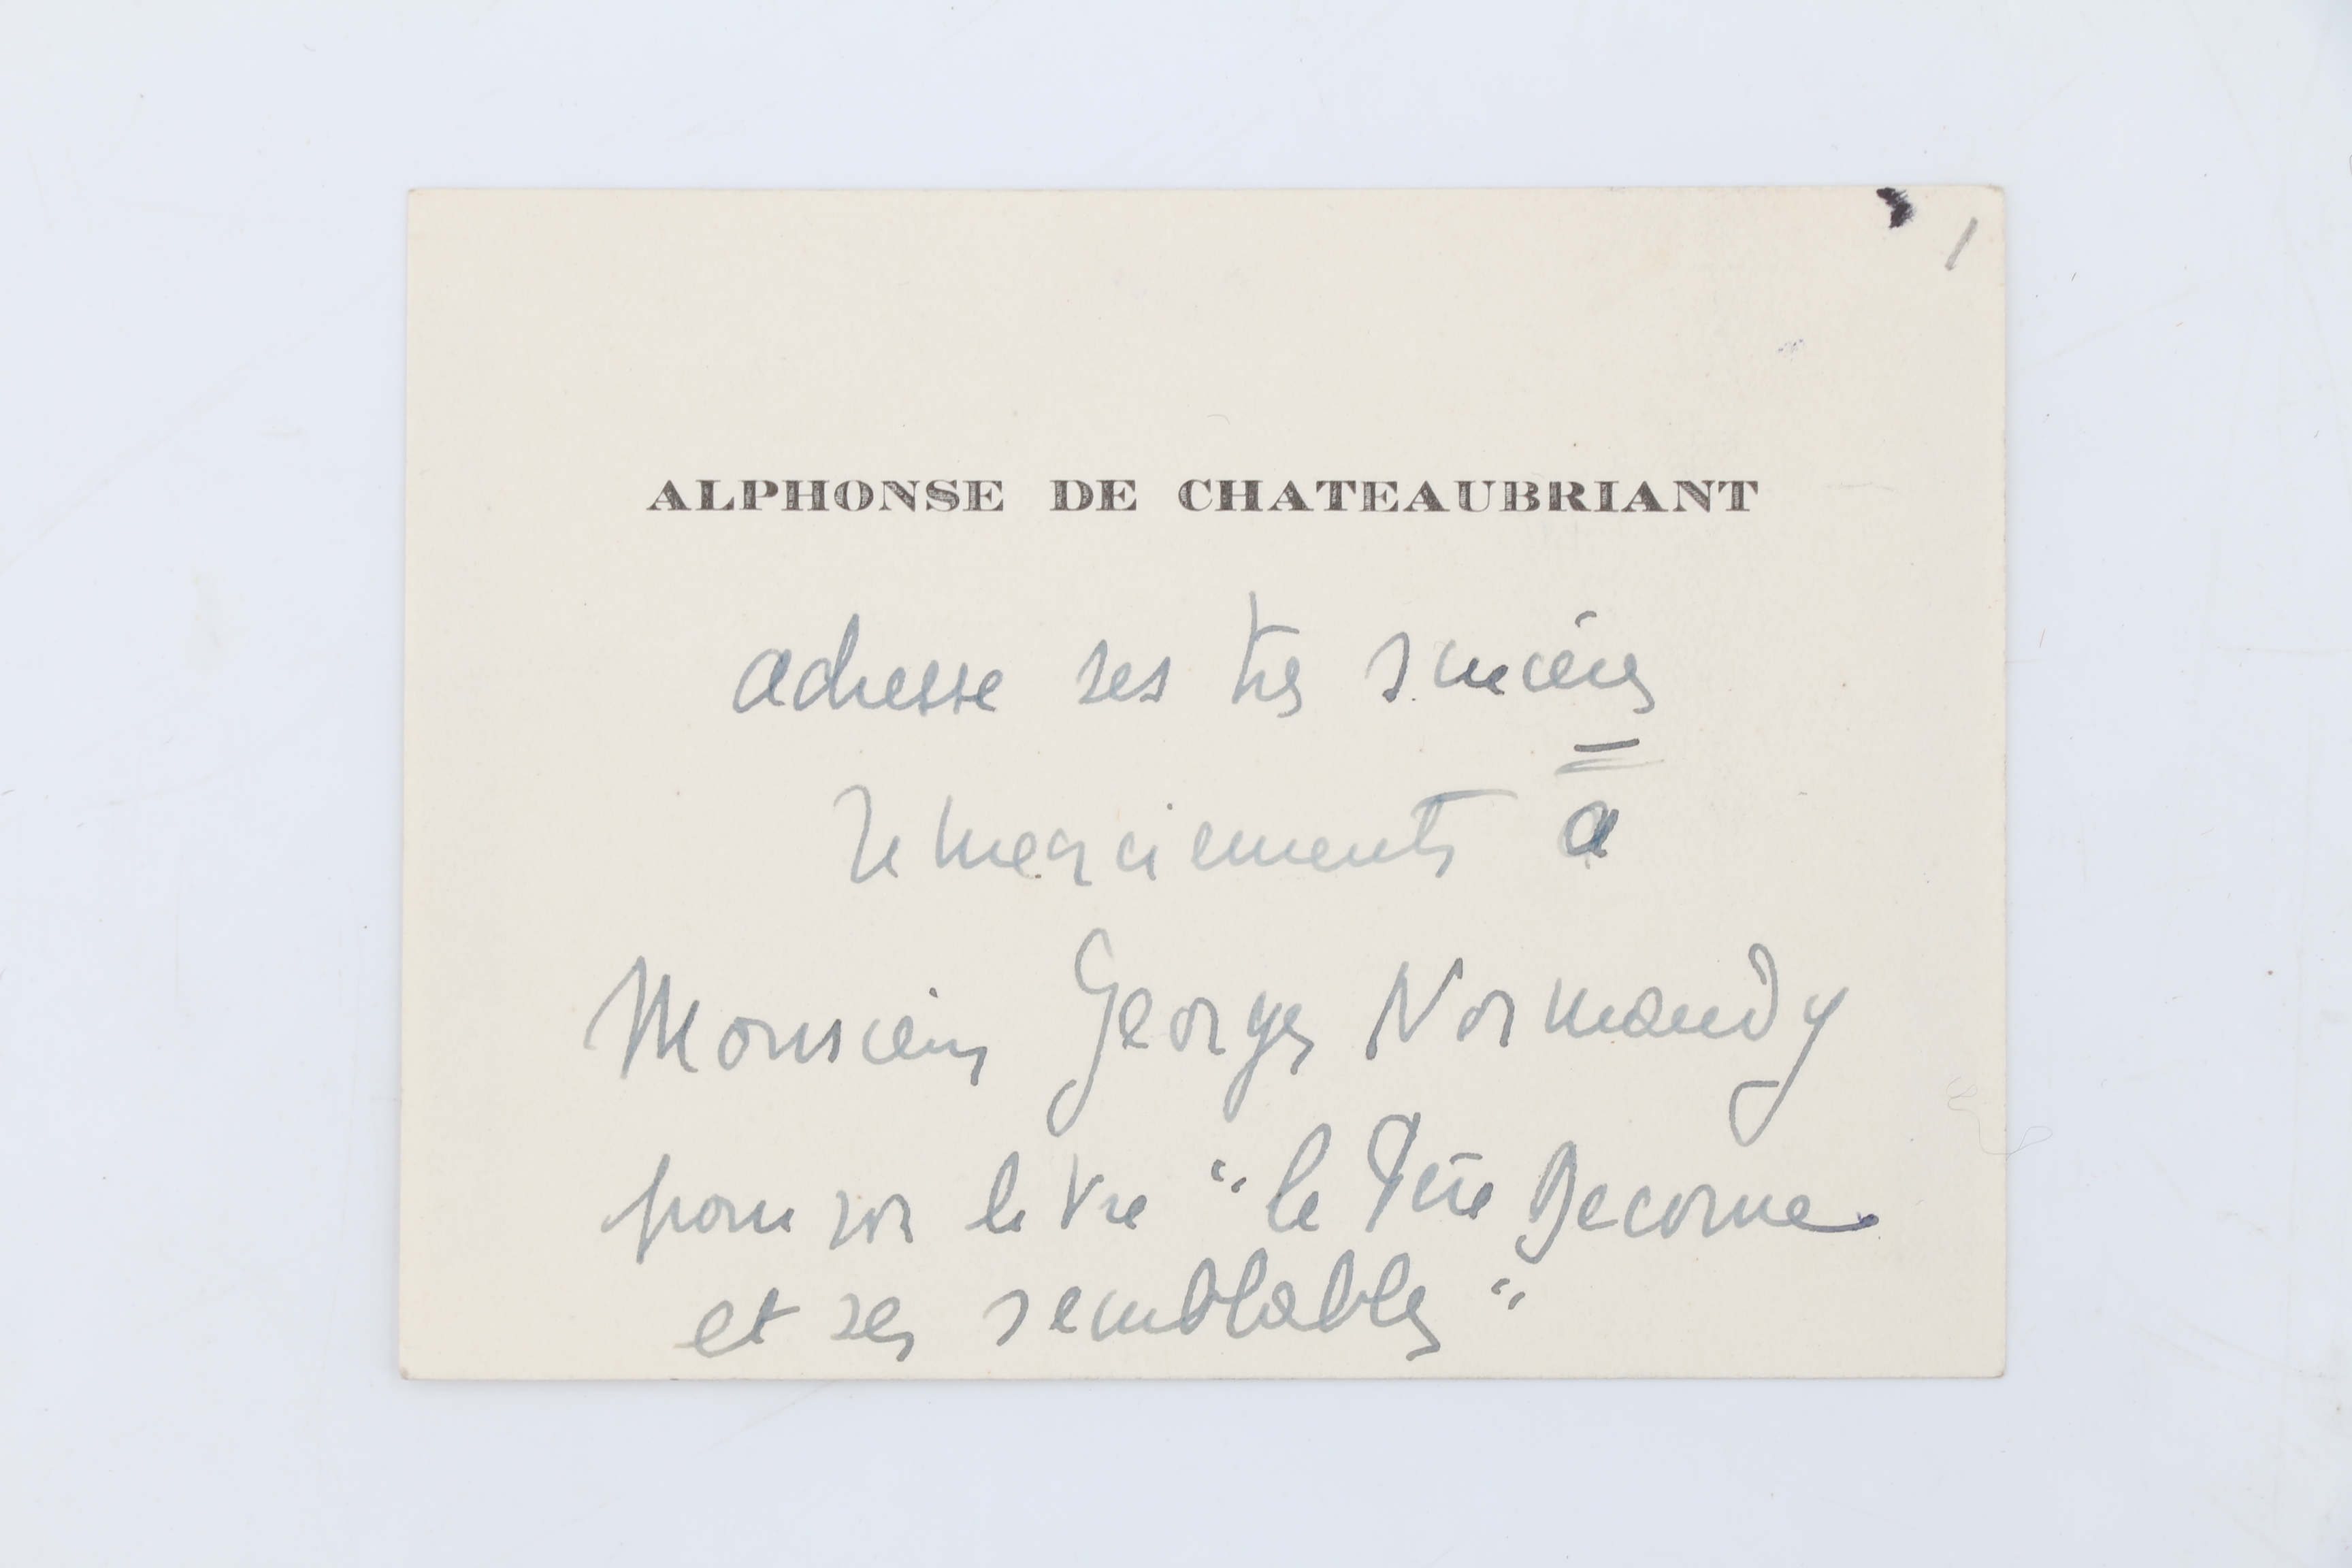 1
ALPHONSE DE CHATEAUBRIANT
adresse ses très sincères
remerciements à
Monsieur Georges Normandy
pour son livre "le Père Decorne
et ses semblables"